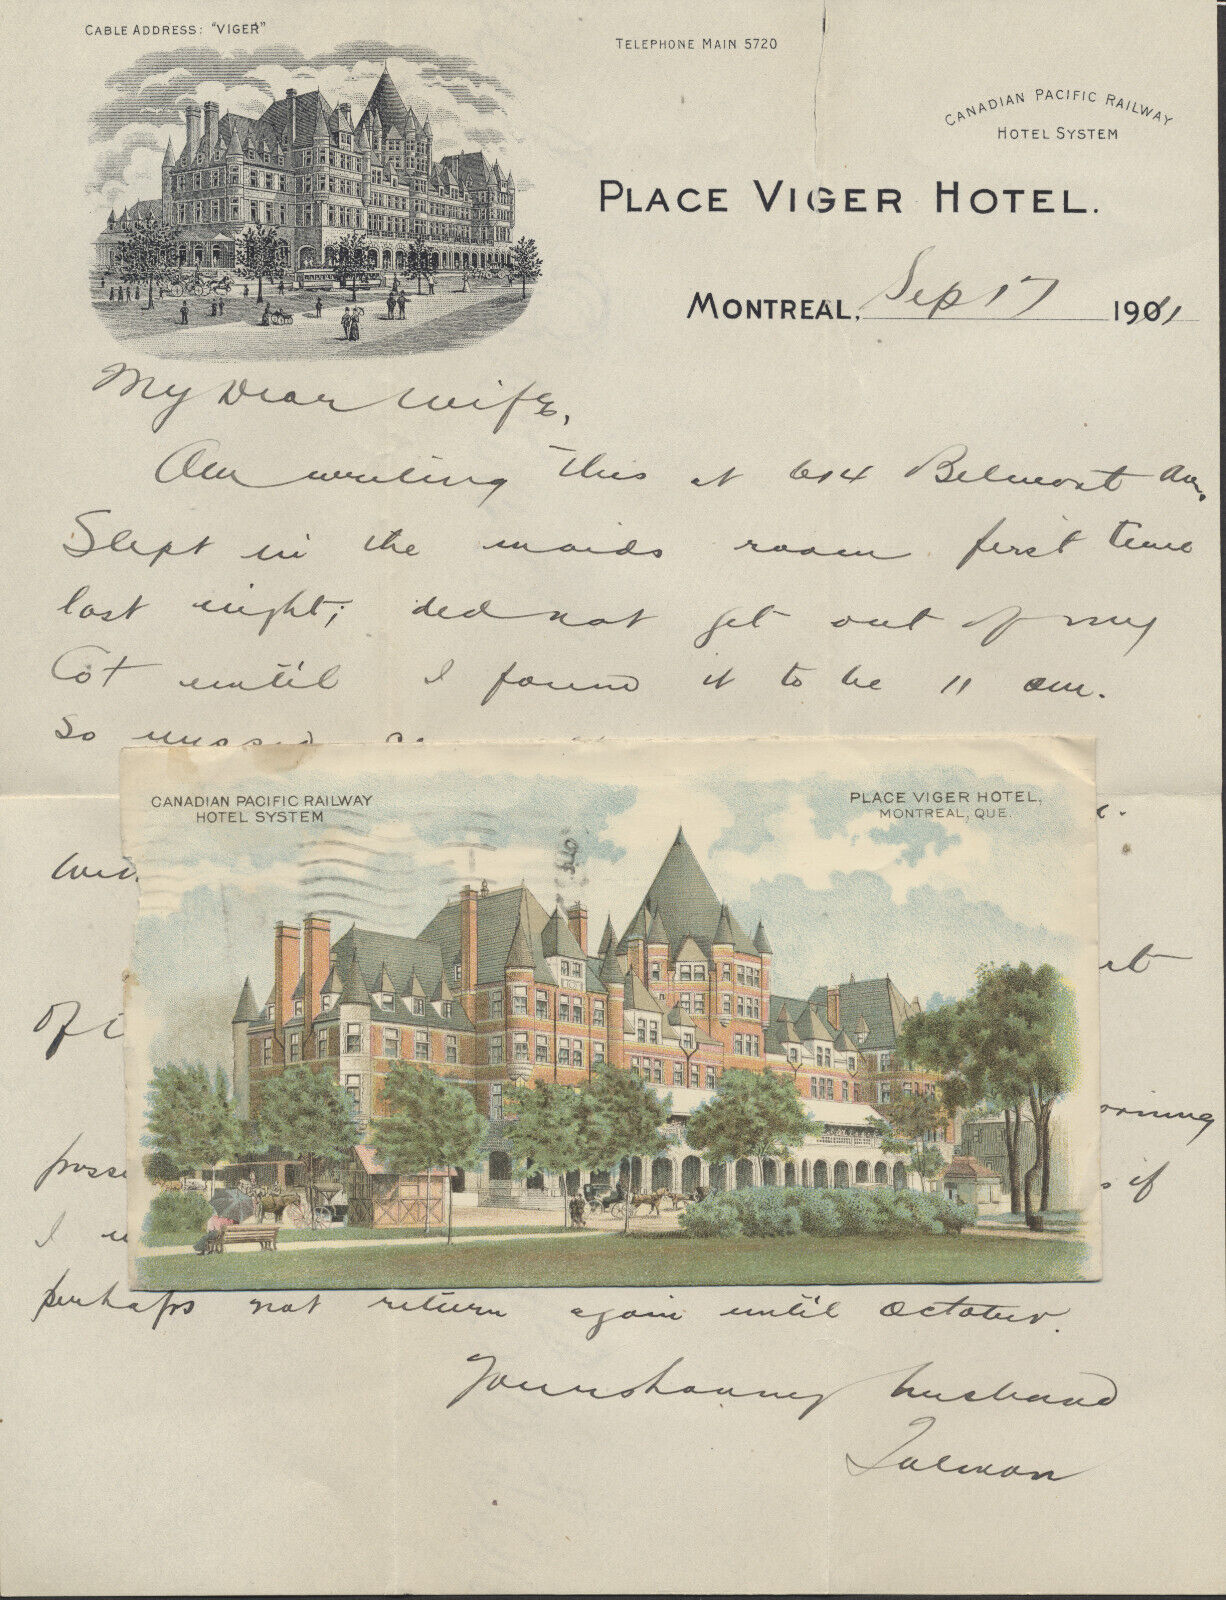 CABLE ADDRESS: "VIGER"
TELEPHONE MAIN 5720
CANADIAN PACIFIC RAILWAY
HOTEL SYSTEM
PLACE VIGER HOTEL.
MONTREAL, Sep 17 1901
My Dear Wife,
Am writing this at 614 Belmont Ave.
Slept in the maids room first time
last night; did not get out of my
Cot until I found it to be 11 am.
So missed
CANADIAN PACIFIC RAILWAY
HOTEL SYSTEM
PLACE VIGER HOTEL,
MONTREAL, QUE.
of
orning
if
I
perhaps not return again until October.
Your husband